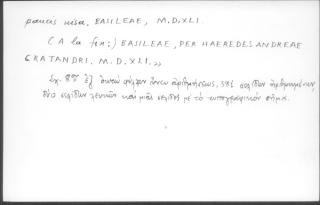 paucis uisa. BASILEAE, M.D.XLI.
(A la fin:) BASILEAE, PER HAEREDES ANDREAE
CRATANDRI. M.D.XLI.»
Σχ. 8ον ἐξ φύλλων ἄνευ ἀριθμήσεως, 581 σελίδων ἠριθμημένων,
δύο σελίδων λευκῶν καὶ μιᾶς σελίδος μὲ τὸ τυπογραφικὸν σῆμα.